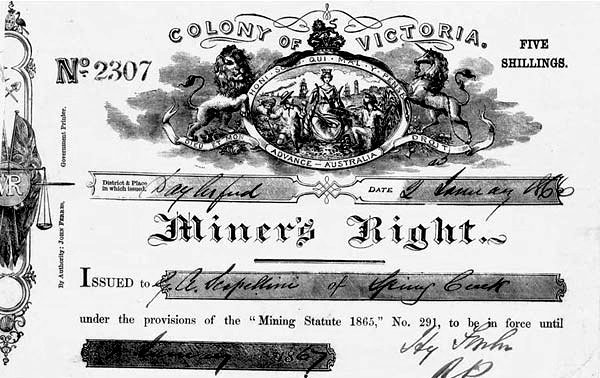 COLONY OF VICTORIA.
No. 2307
FIVE
SHILLINGS.
HONI SOIT QUI MAL Y PENSE
DIEU ET MON DROIT
ADVANCE AUSTRALIA
District & Place
in which issued. Daylesford DATE 2 January 1866
Miner's Right.
ISSUED to A. Scapellini of Spring Creek
under the provisions of the "Mining Statute 1865," No. 291, to be in force until
January 1867
By Authority: JOHN FERRES, Government Printer.
VR